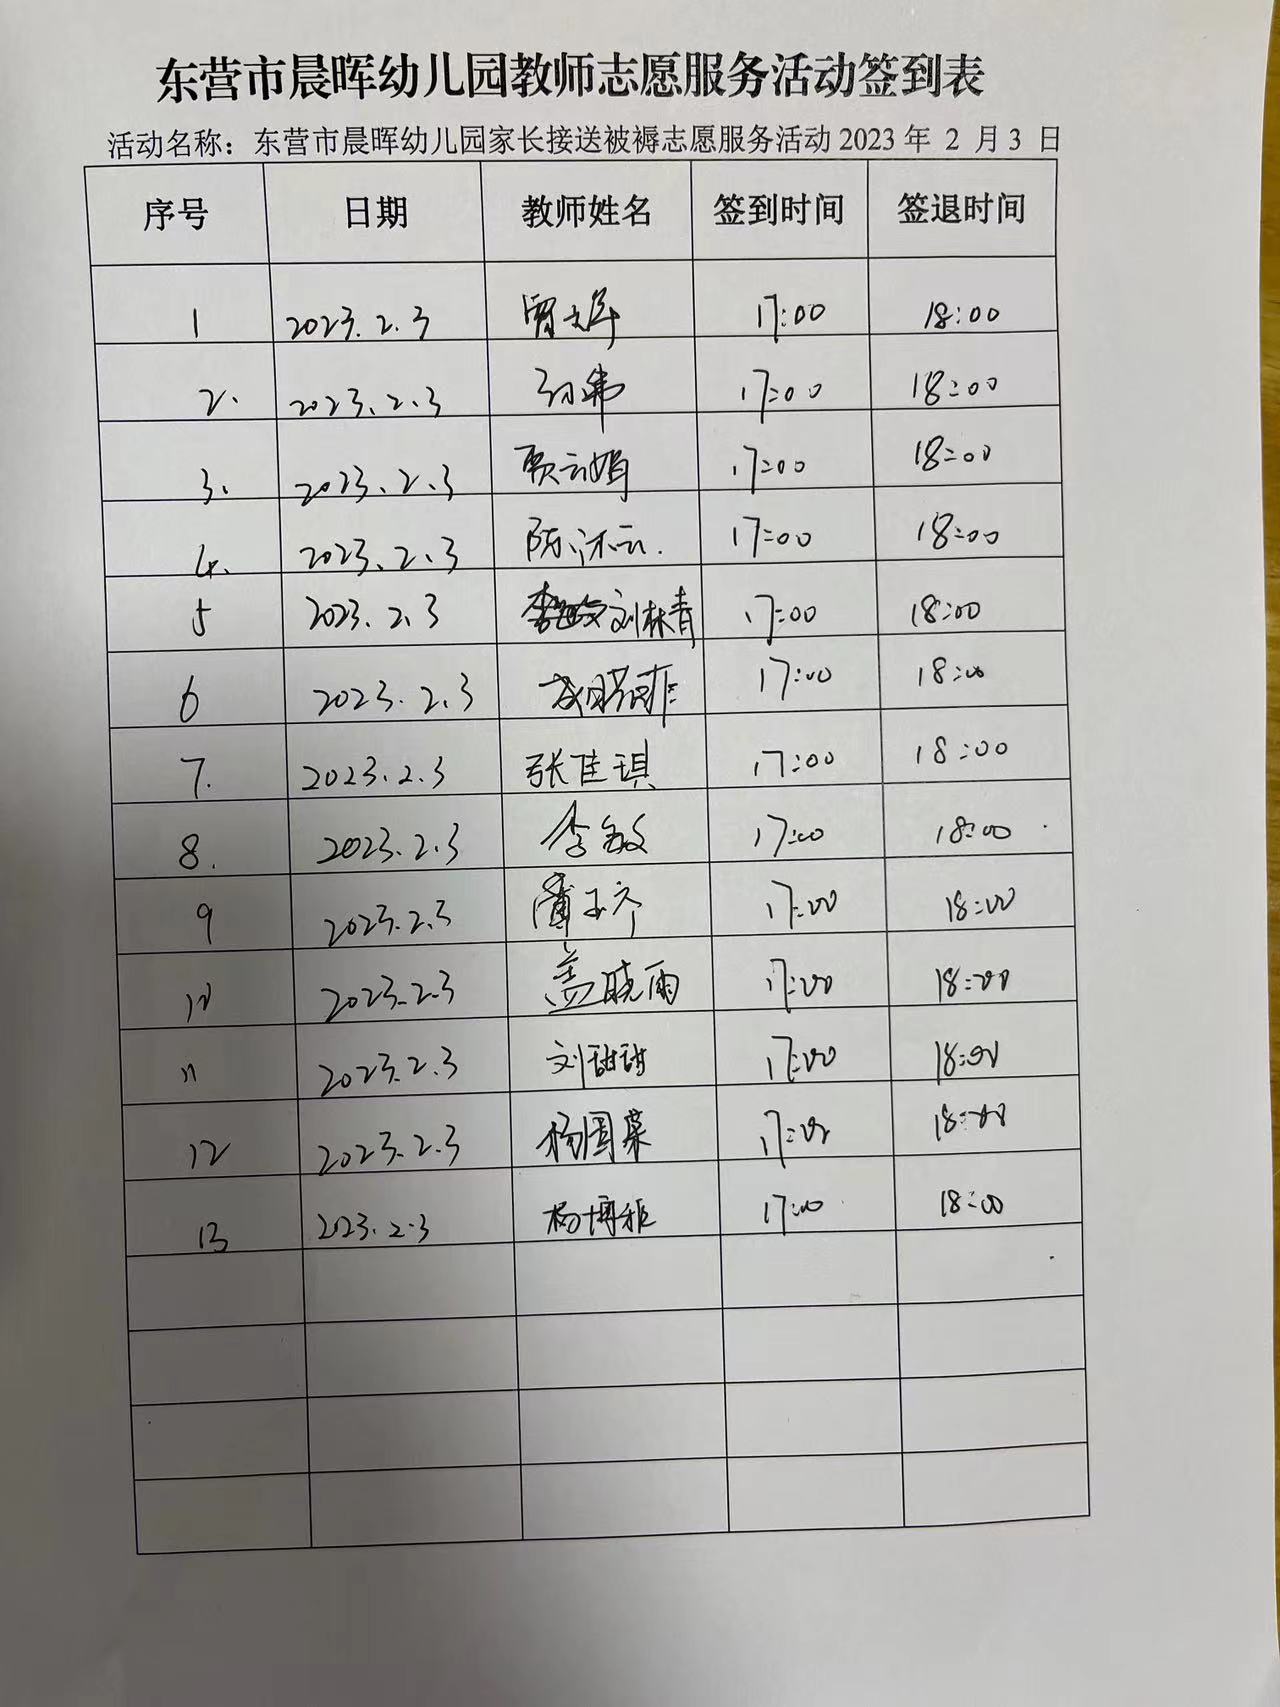 东营市晨晖幼儿园教师志愿服务活动签到表
活动名称：东营市晨晖幼儿园家长接送被褥志愿服务活动2023年 2 月 3 日
序号 日期 教师姓名 签到时间 签退时间
1 2023.2.3 17:00 18:00
2. 2023.2.3 17:00 18:00
3. 2023.2.3 贾云娟 17:00 18:00
4. 2023.2.3 17:00 18:00
5 2023.2.3 刘林青 17:00 18:00
6 2023.2.3 17:00 18:00
7. 2023.2.3 张佳琪 17:00 18:00
8. 2023.2.3 李敏 17:00 18:00
9 2023.2.3 17:00 18:00
10 2023.2.3 盖晓雨 17:00 18:00
11 2023.2.3 刘甜甜 17:00 18:00
12 2023.2.3 17:00 18:00
13 2023.2.3 杨博雅 17:00 18:00